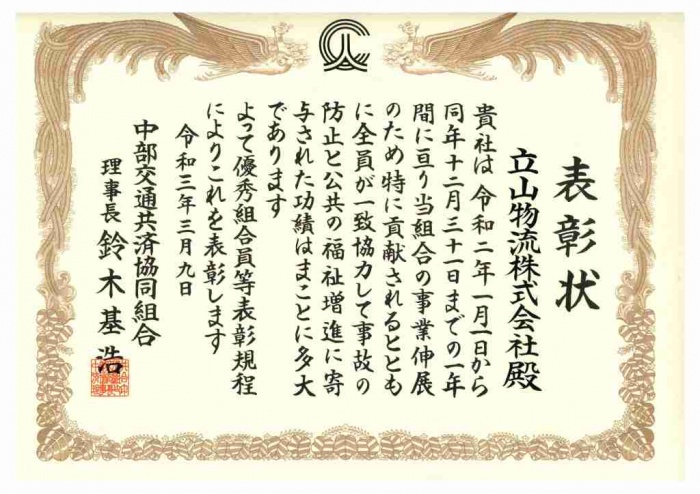 表彰状
立山物流株式会社殿
貴社は令和二年一月一日から
同年十二月三十一日までの一年
間に亘り当組合の事業伸展
のため特に貢献されるととも
に全員が一致協力して事故の
防止と公共の福祉増進に寄
与された功績はまことに多大
であります
よって優秀組合員等表彰規程
によりこれを表彰します
令和三年三月九日
中部交通共済協同組合
理事長 鈴木基浩